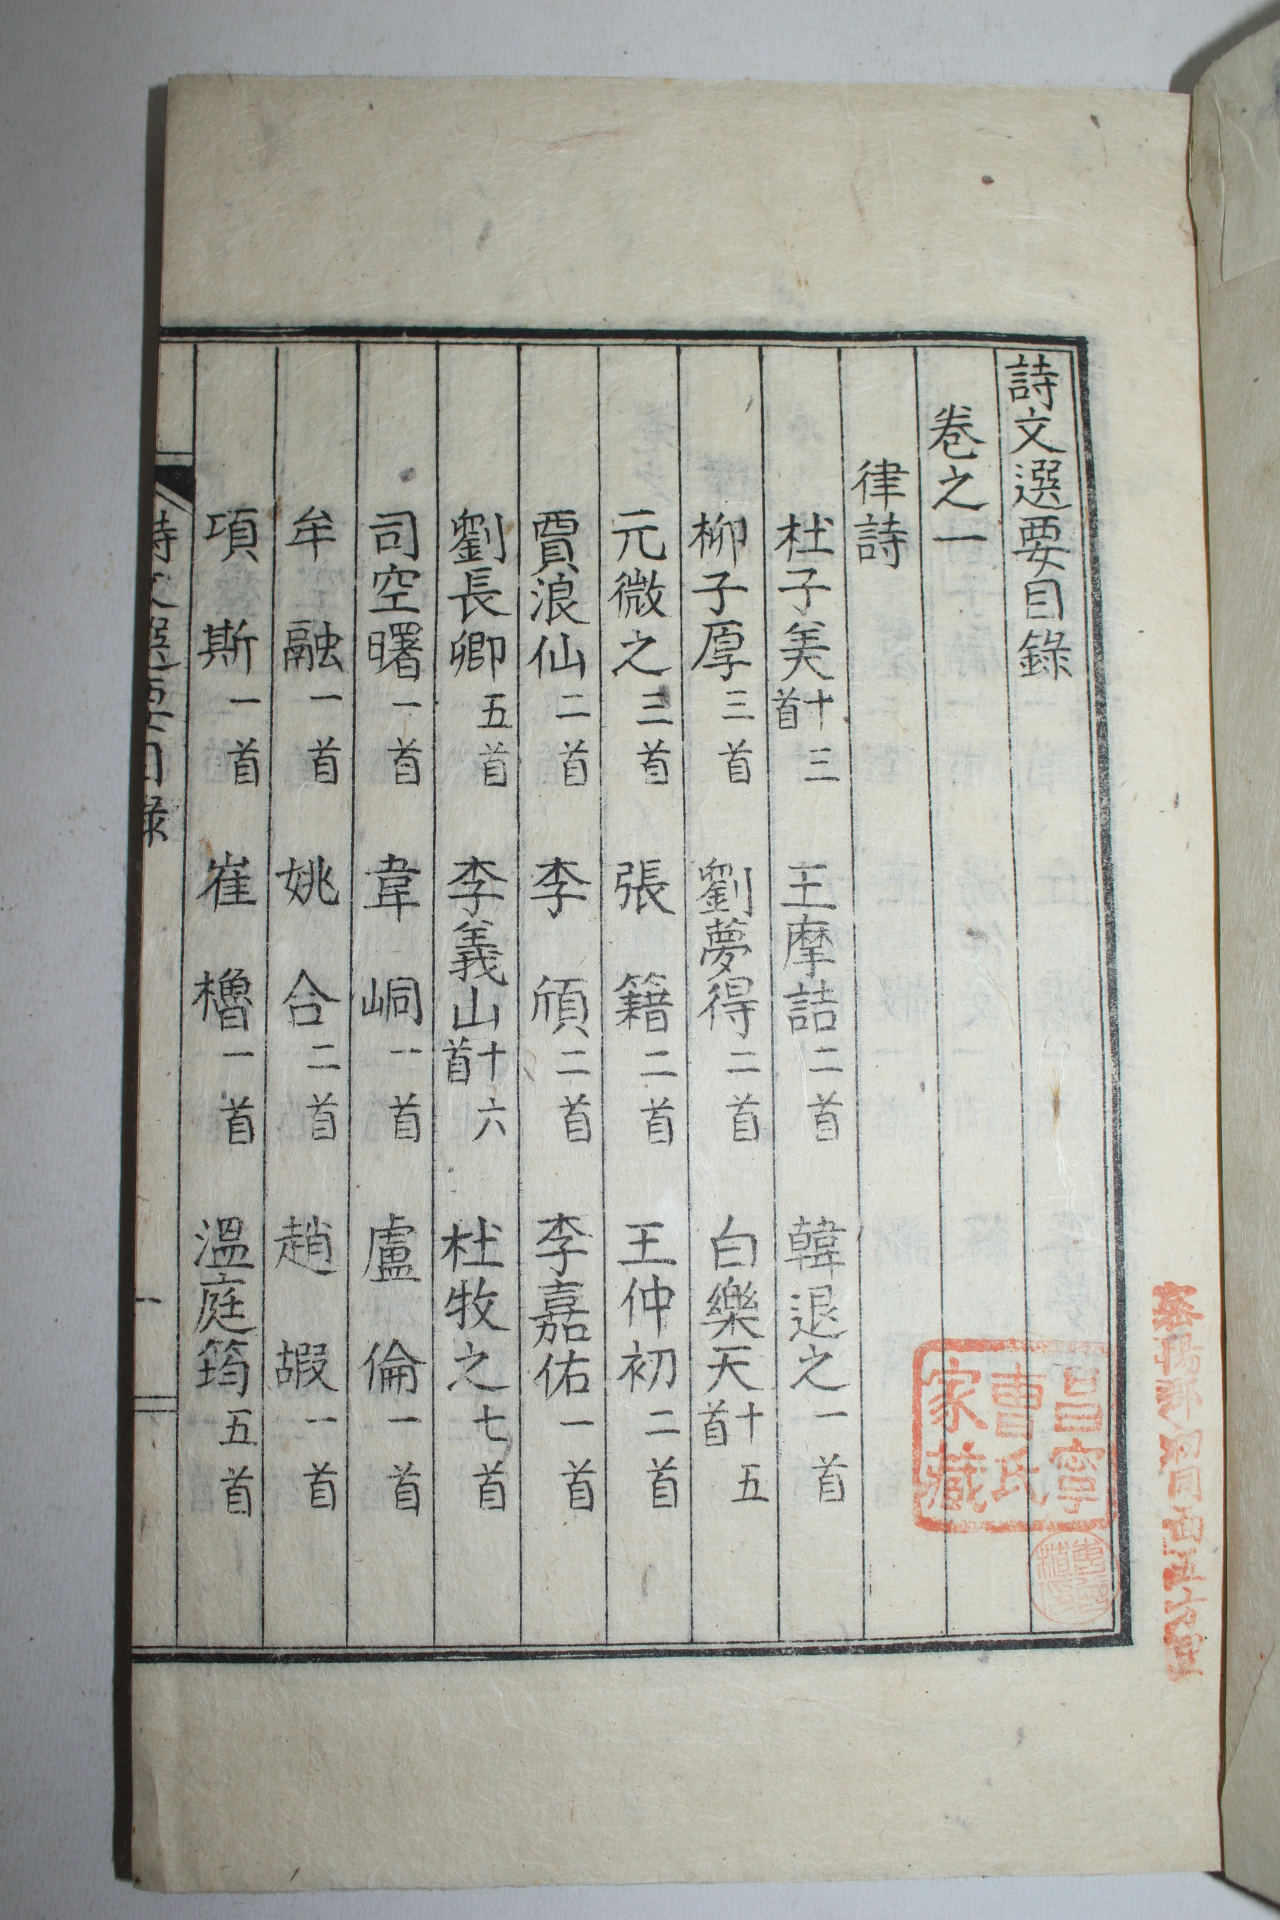 詩文選要目錄
卷之一
律詩
杜子美十三首 王摩詰二首 韓退之一首
柳子厚三首 劉夢得二首 白樂天十五首
元微之三首 張籍二首 王仲初二首
賈浪仙二首 李頎二首 李嘉佑一首
劉長卿五首 李義山十六首 杜牧之七首
司空曙一首 韋峒一首 盧倫一首
牟融一首 姚合二首 趙嘏一首
項斯一首 崔櫓一首 溫庭筠五首
詩文選要目錄 一
昌寧
曹氏
家藏